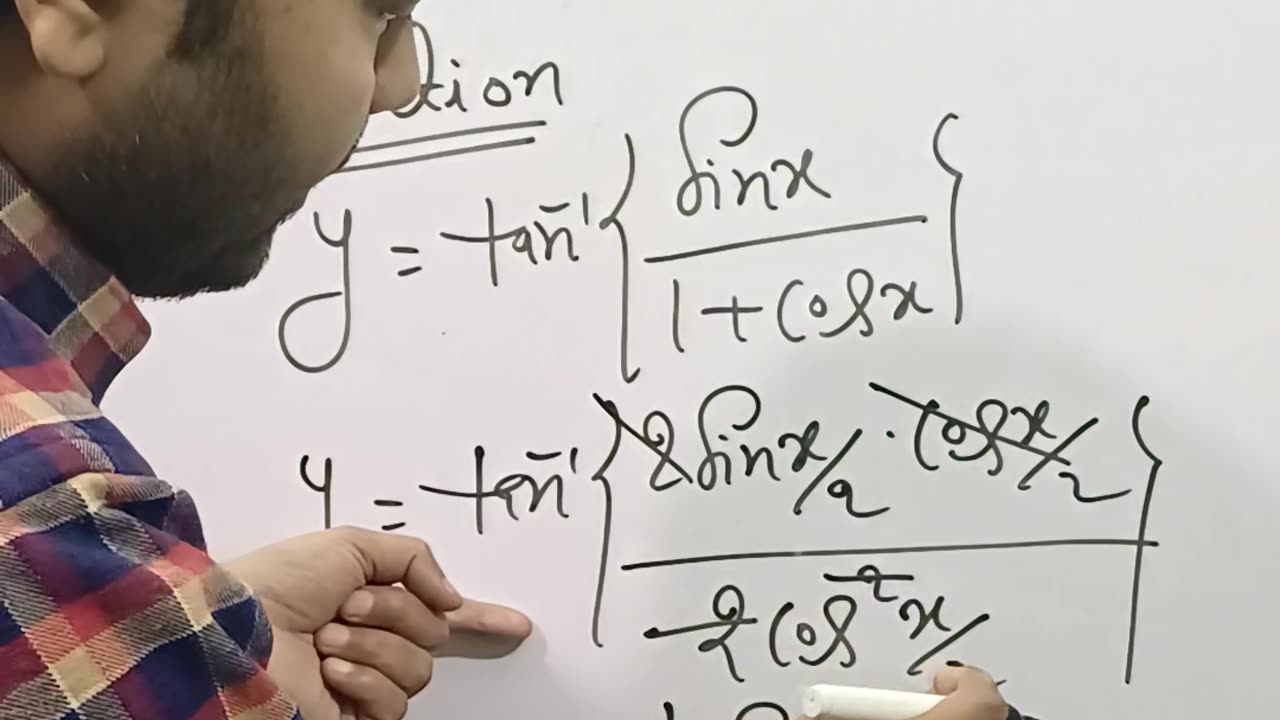 tion
y = tan⁻¹ { sinx / 1 + cosx }
y = tan⁻¹ { 2 sin x/2 · cos x/2 / 2 cos² x/ }